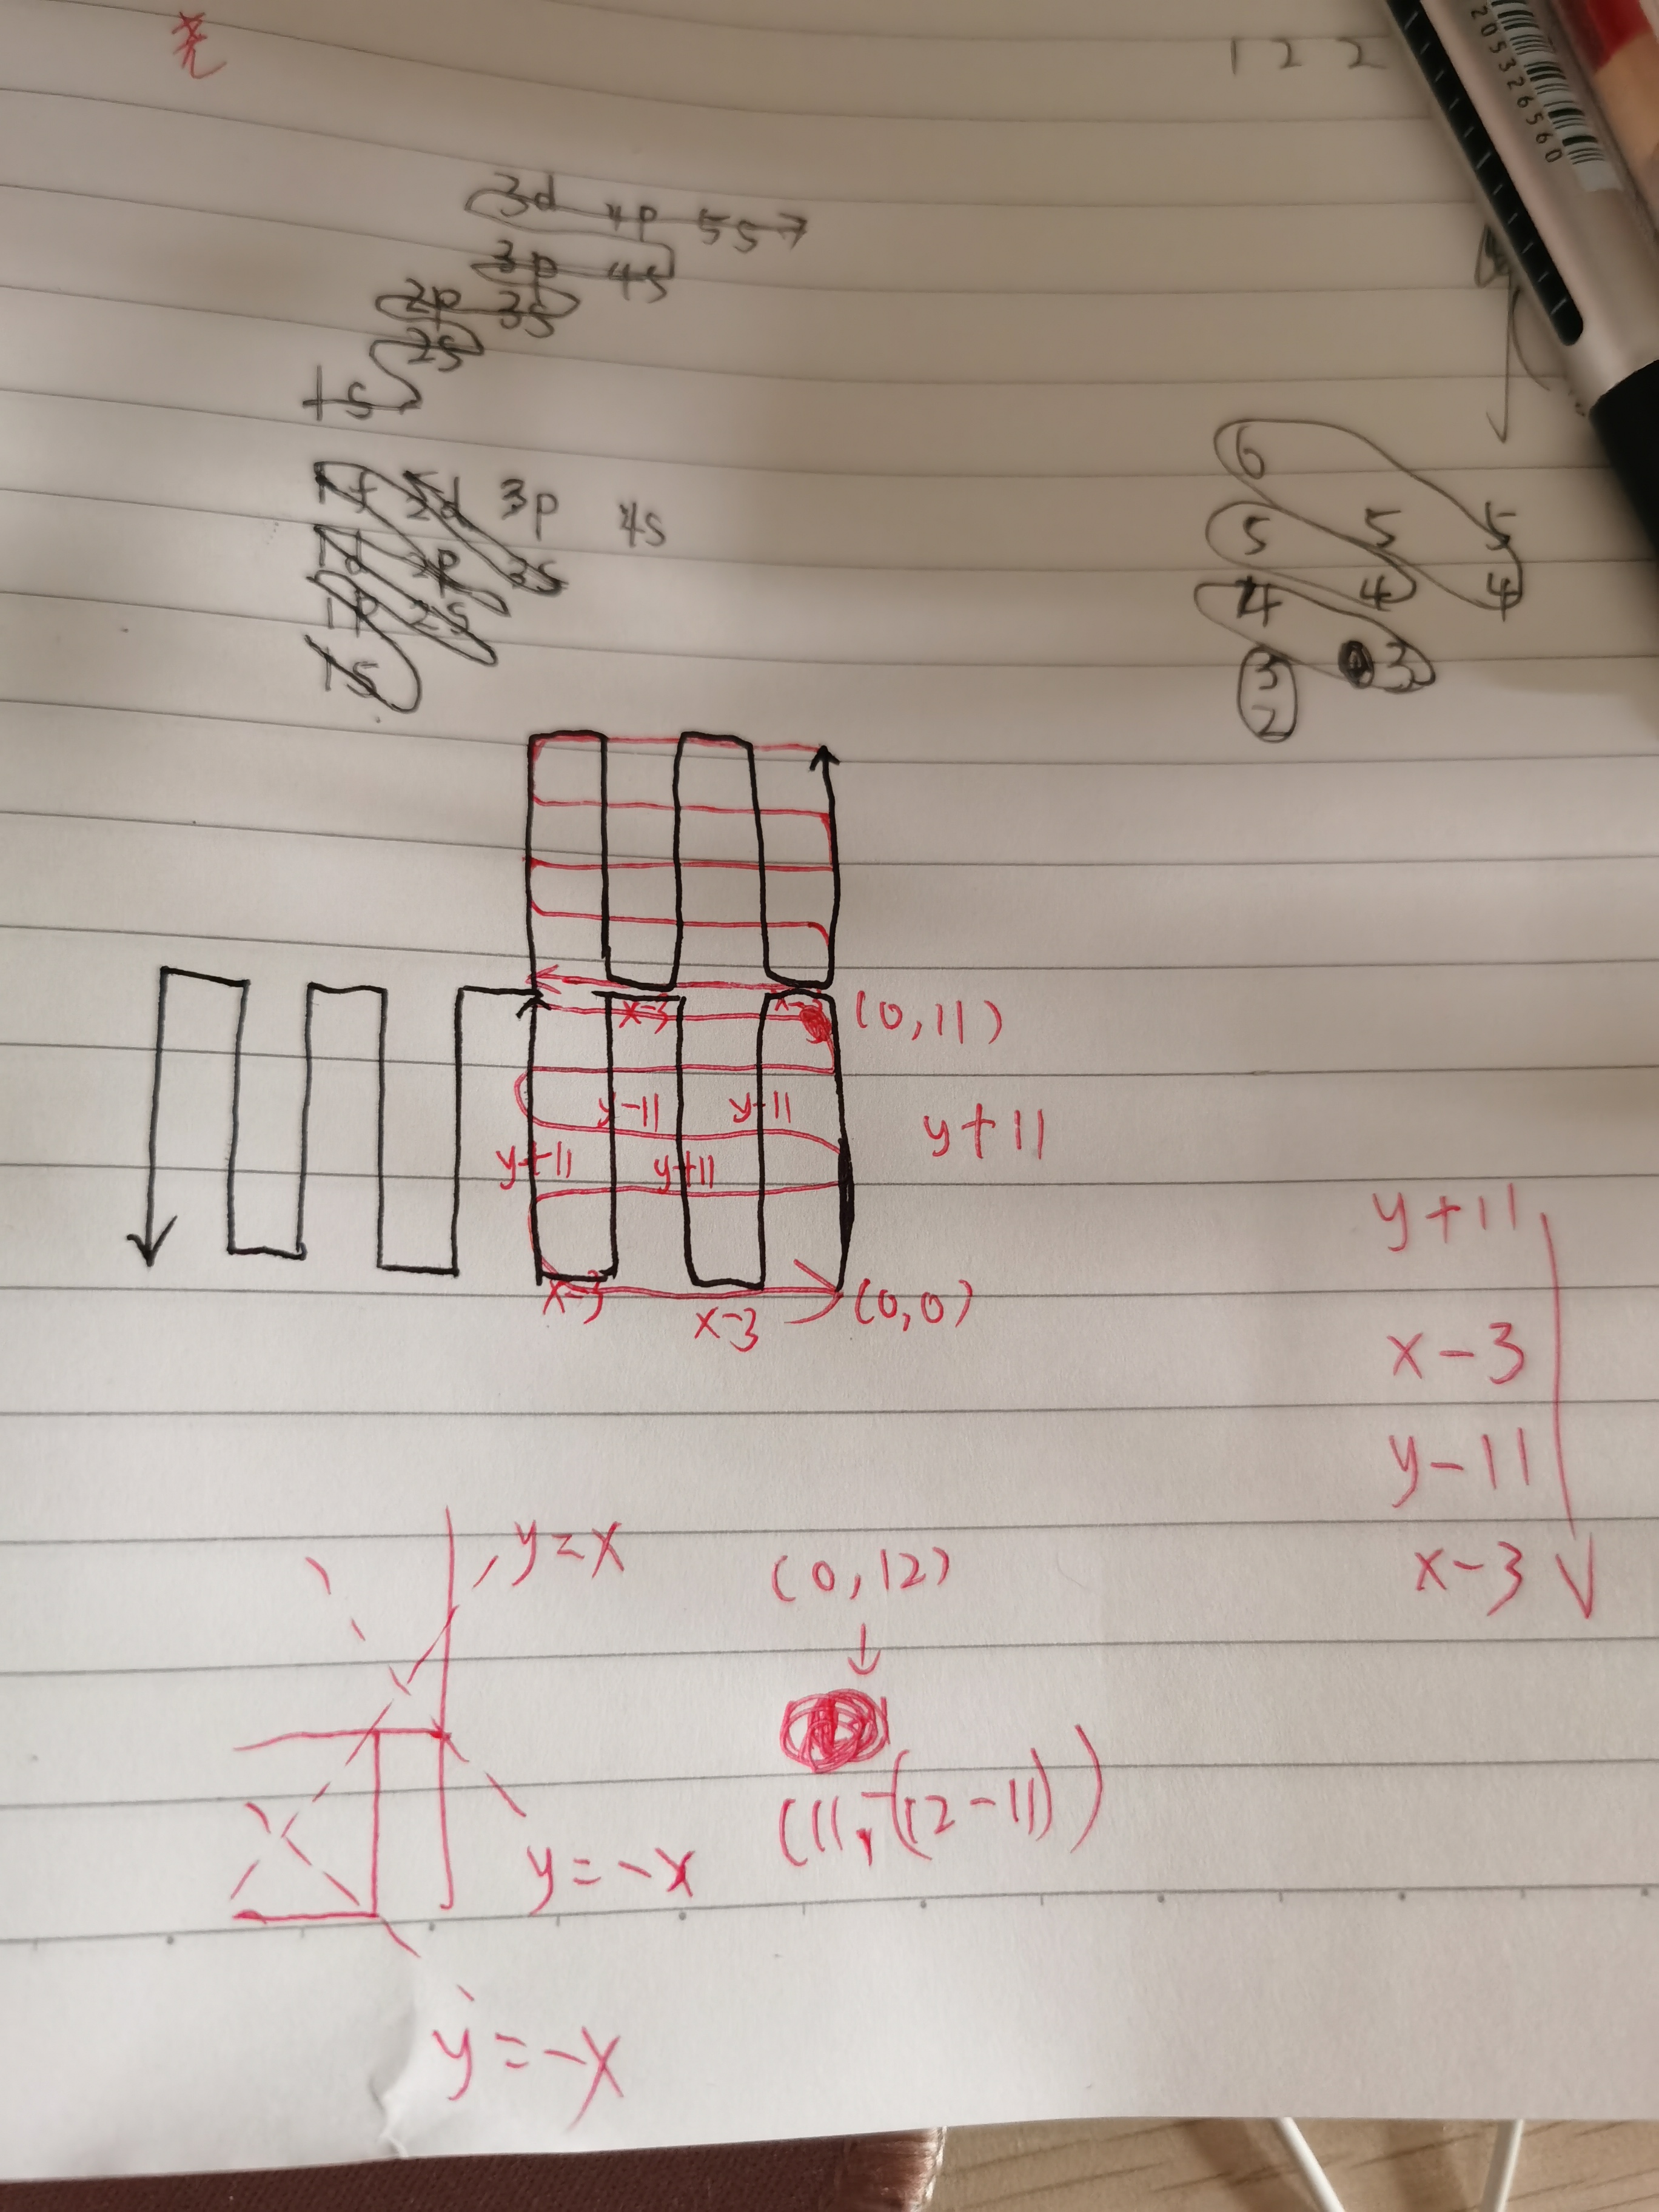 1 2 2
20532656560
3d 4p 5s
3p 4s
2p 3s
2s
1s
1f 2d 3p 4s
1d 2p 3s
1p 2s
1s
6
5 5 5
4 4 4
3 3
2
x-3 (0,11)
y-11 y-11 y+11
y+11 y+11
x-3 x-3 (0,0)
y+11
x-3
y-11
x-3
y=x
(0,12)
↓
(11,-(12-11))
y=-x
y=-x